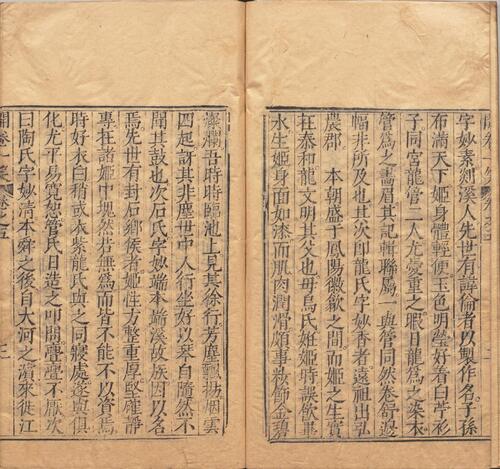 字妙素剡溪人先世有諱倫者以製作名子孫
布滿天下姬身體輕便玉色明瑩好着白苧衫
子同宮龍管二人尤愛重之暇日龍為之染衣
管為之畵眉其記輯聯屬一與管同然卷舒邊
幅非所及也其次卽龍氏字妙香者遠祖出弘
農郡 本朝盛于鳳陽微歙之間而姬之生實
在泰和龍文明其父也毋烏氏姙姬時誤飲墨
水生姬身面如漆而肌肉潤滑頗事粧飾金碧
燦爛吾時時臨池上見其徐行芳塵飄揚烟雲
四起訝其非塵世中人行坐好以琴自隨然不
聞其鼓也次石氏字妙端本端溪故族因以名
焉先世有封石鄉侯者姬性方整重厚堅確靜
專在諸姬中塊然若無為而皆不能不以資焉
時好衣白稍或衣紫龍氏與之同寢處遂與俱
化尤平易寬恕管氏日造之叩問亹亹不厭次
曰陶氏字妙清本舜之後自大河之濱來徙江
開卷一笑 卷之五
三